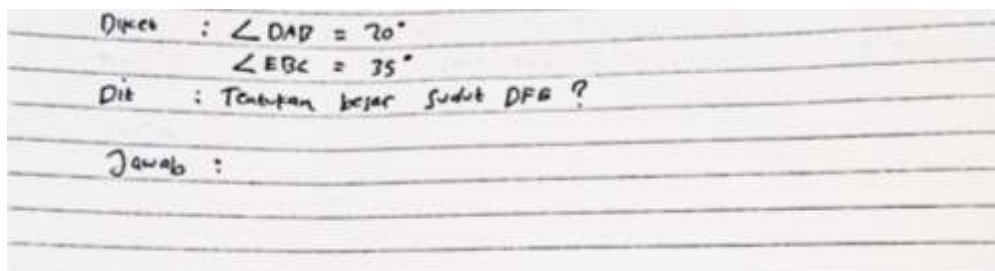 Diket : ∠ DAB = 20°
∠ EBC = 35°
Dit : Tentukan besar sudut DFE ?
Jawab :